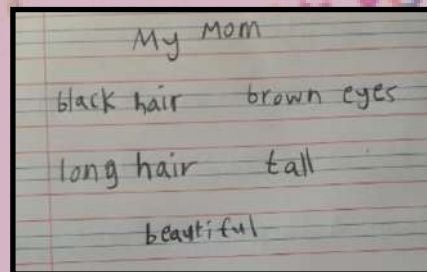 My Mom
black hair brown eyes
long hair tall
beautiful